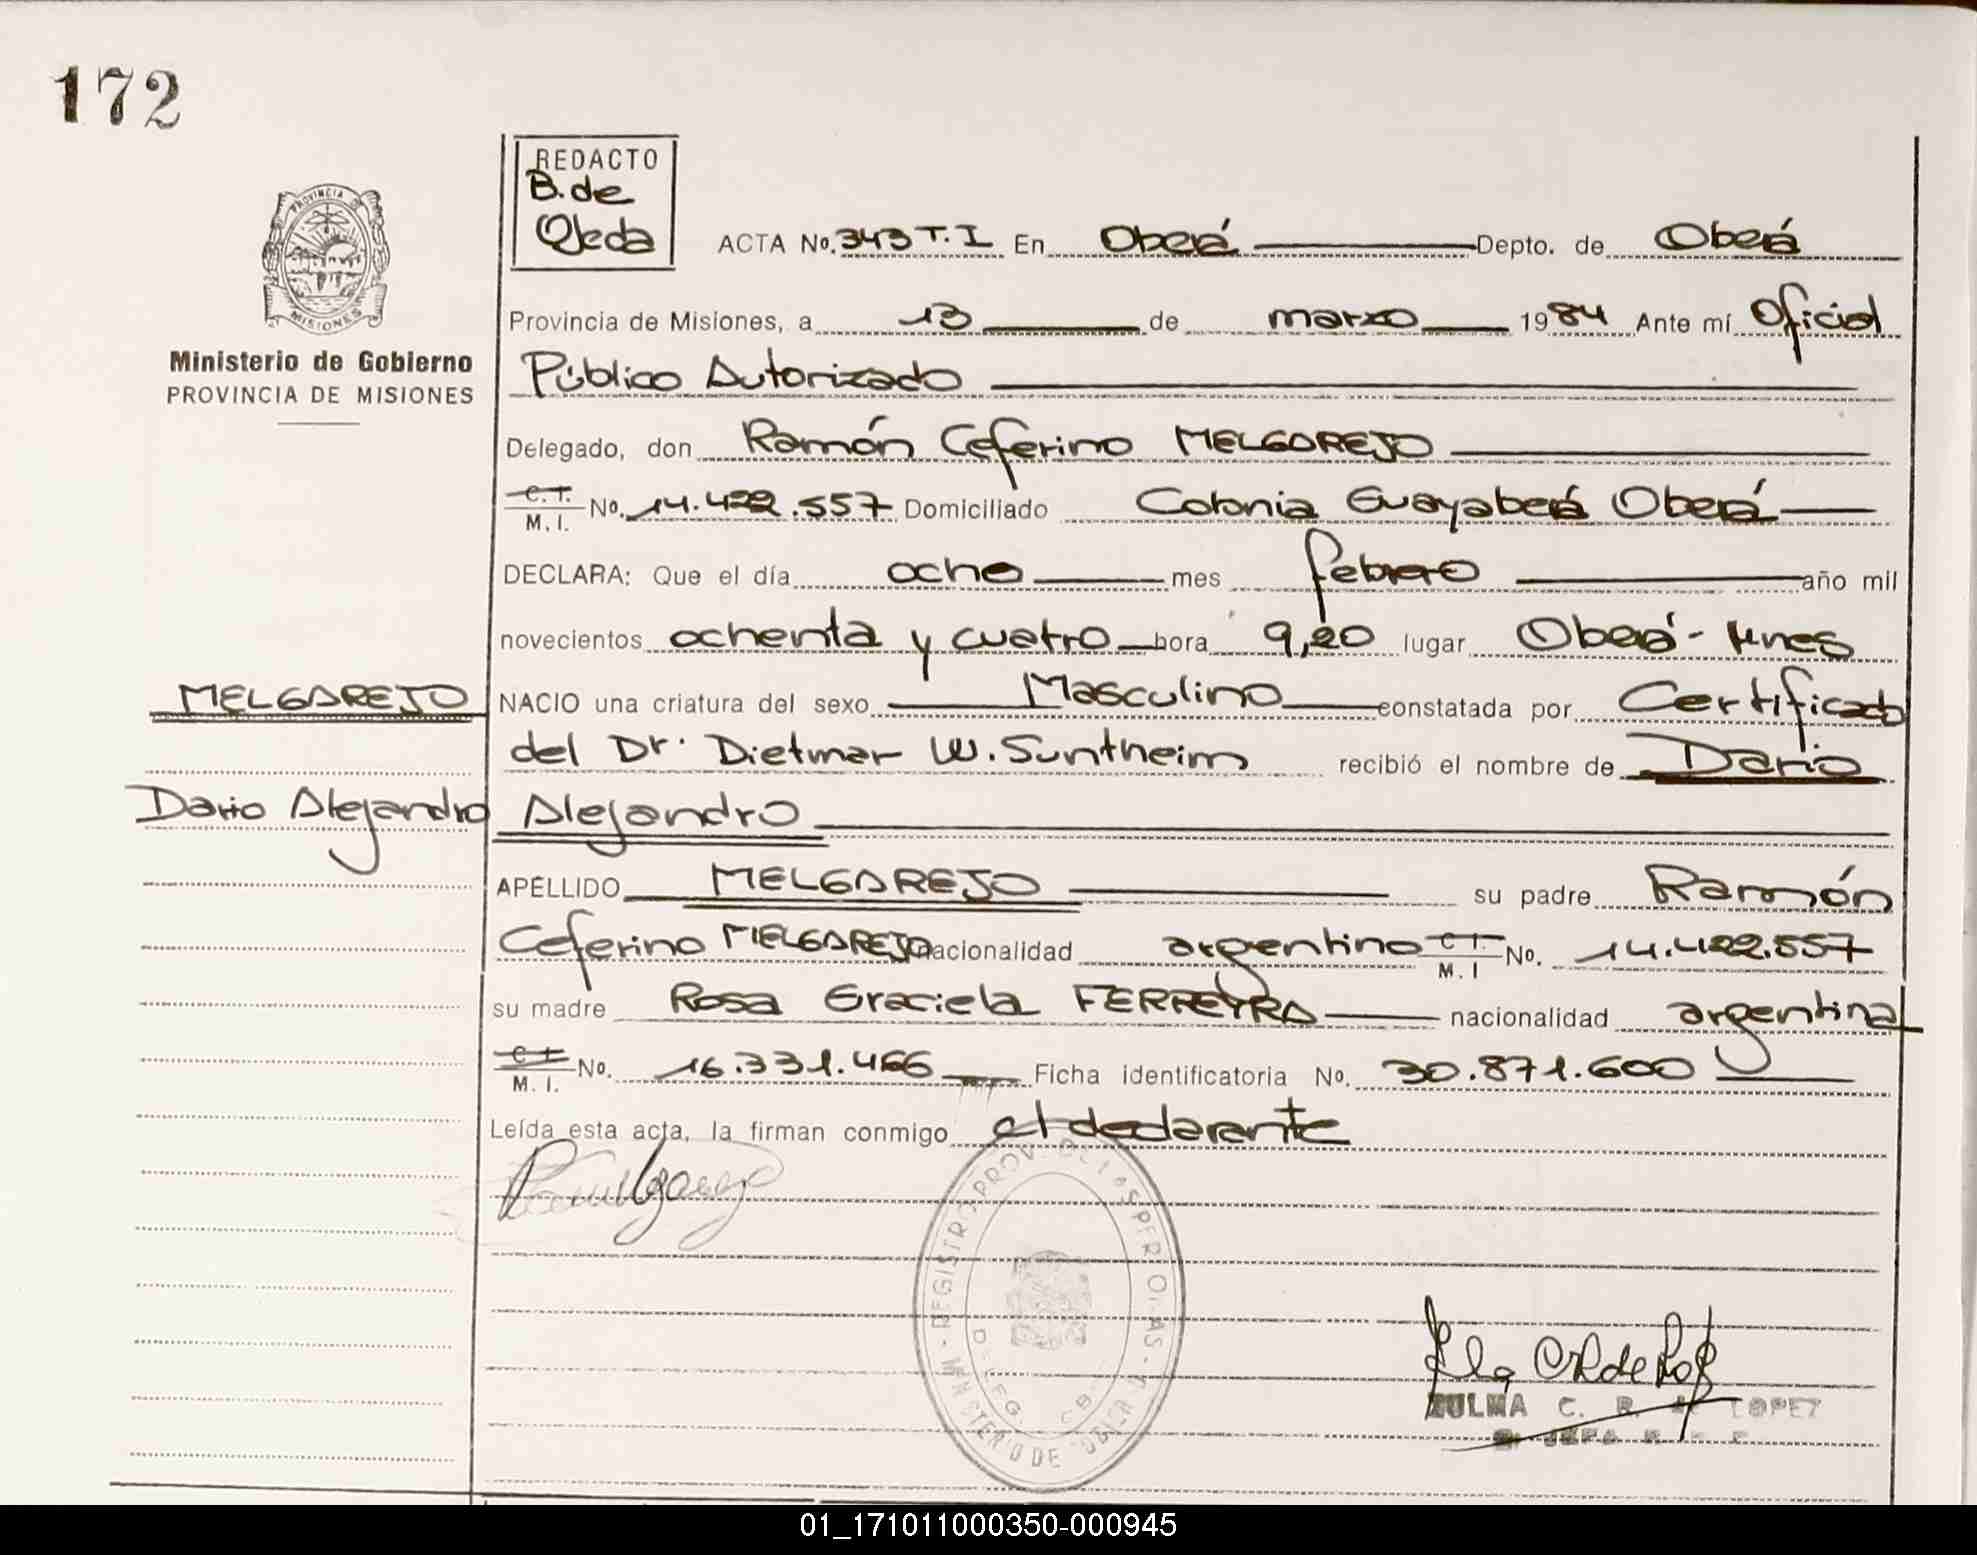 172
PROVINCIA DE
MISIONES
Ministerio de Gobierno
PROVINCIA DE MISIONES
REDACTO
B. de
Ojeda
ACTA No. 343 T.I En Oberá Depto. de Oberá
Provincia de Misiones, a 13 de marzo 1984 Ante mí Oficial
Público Autorizado
Delegado, don Ramón Ceferino MELGAREJO
C.I. M.I. No. 14.422.557 Domiciliado Colonia Guayaberá Oberá
DECLARA: Que el día ocho mes febrero año mil
novecientos ochenta y cuatro hora 9,20 lugar Oberá - Mnes
MELGAREJO
NACIO una criatura del sexo Masculino constatada por Certificado
del Dr. Dietmar W. Suntheim recibió el nombre de Dario
Dario Alejandro
Alejandro
APELLIDO MELGAREJO su padre Ramón
Ceferino MELGAREJO nacionalidad argentino C.I. M.I No. 14.422.557
su madre Rosa Graciela FERREYRA nacionalidad argentina
C.I. M.I. No. 16.331.466 Ficha identificatoria No. 30.871.600
Leída esta acta, la firman conmigo el declarante
REGISTRO PROV. DE LAS PERSONAS
MINISTERIO DE
DELEG.
ZULMA C. R. de LOPEZ
01_171011000350-000945